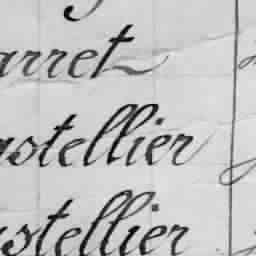 arret
astellier
astellier